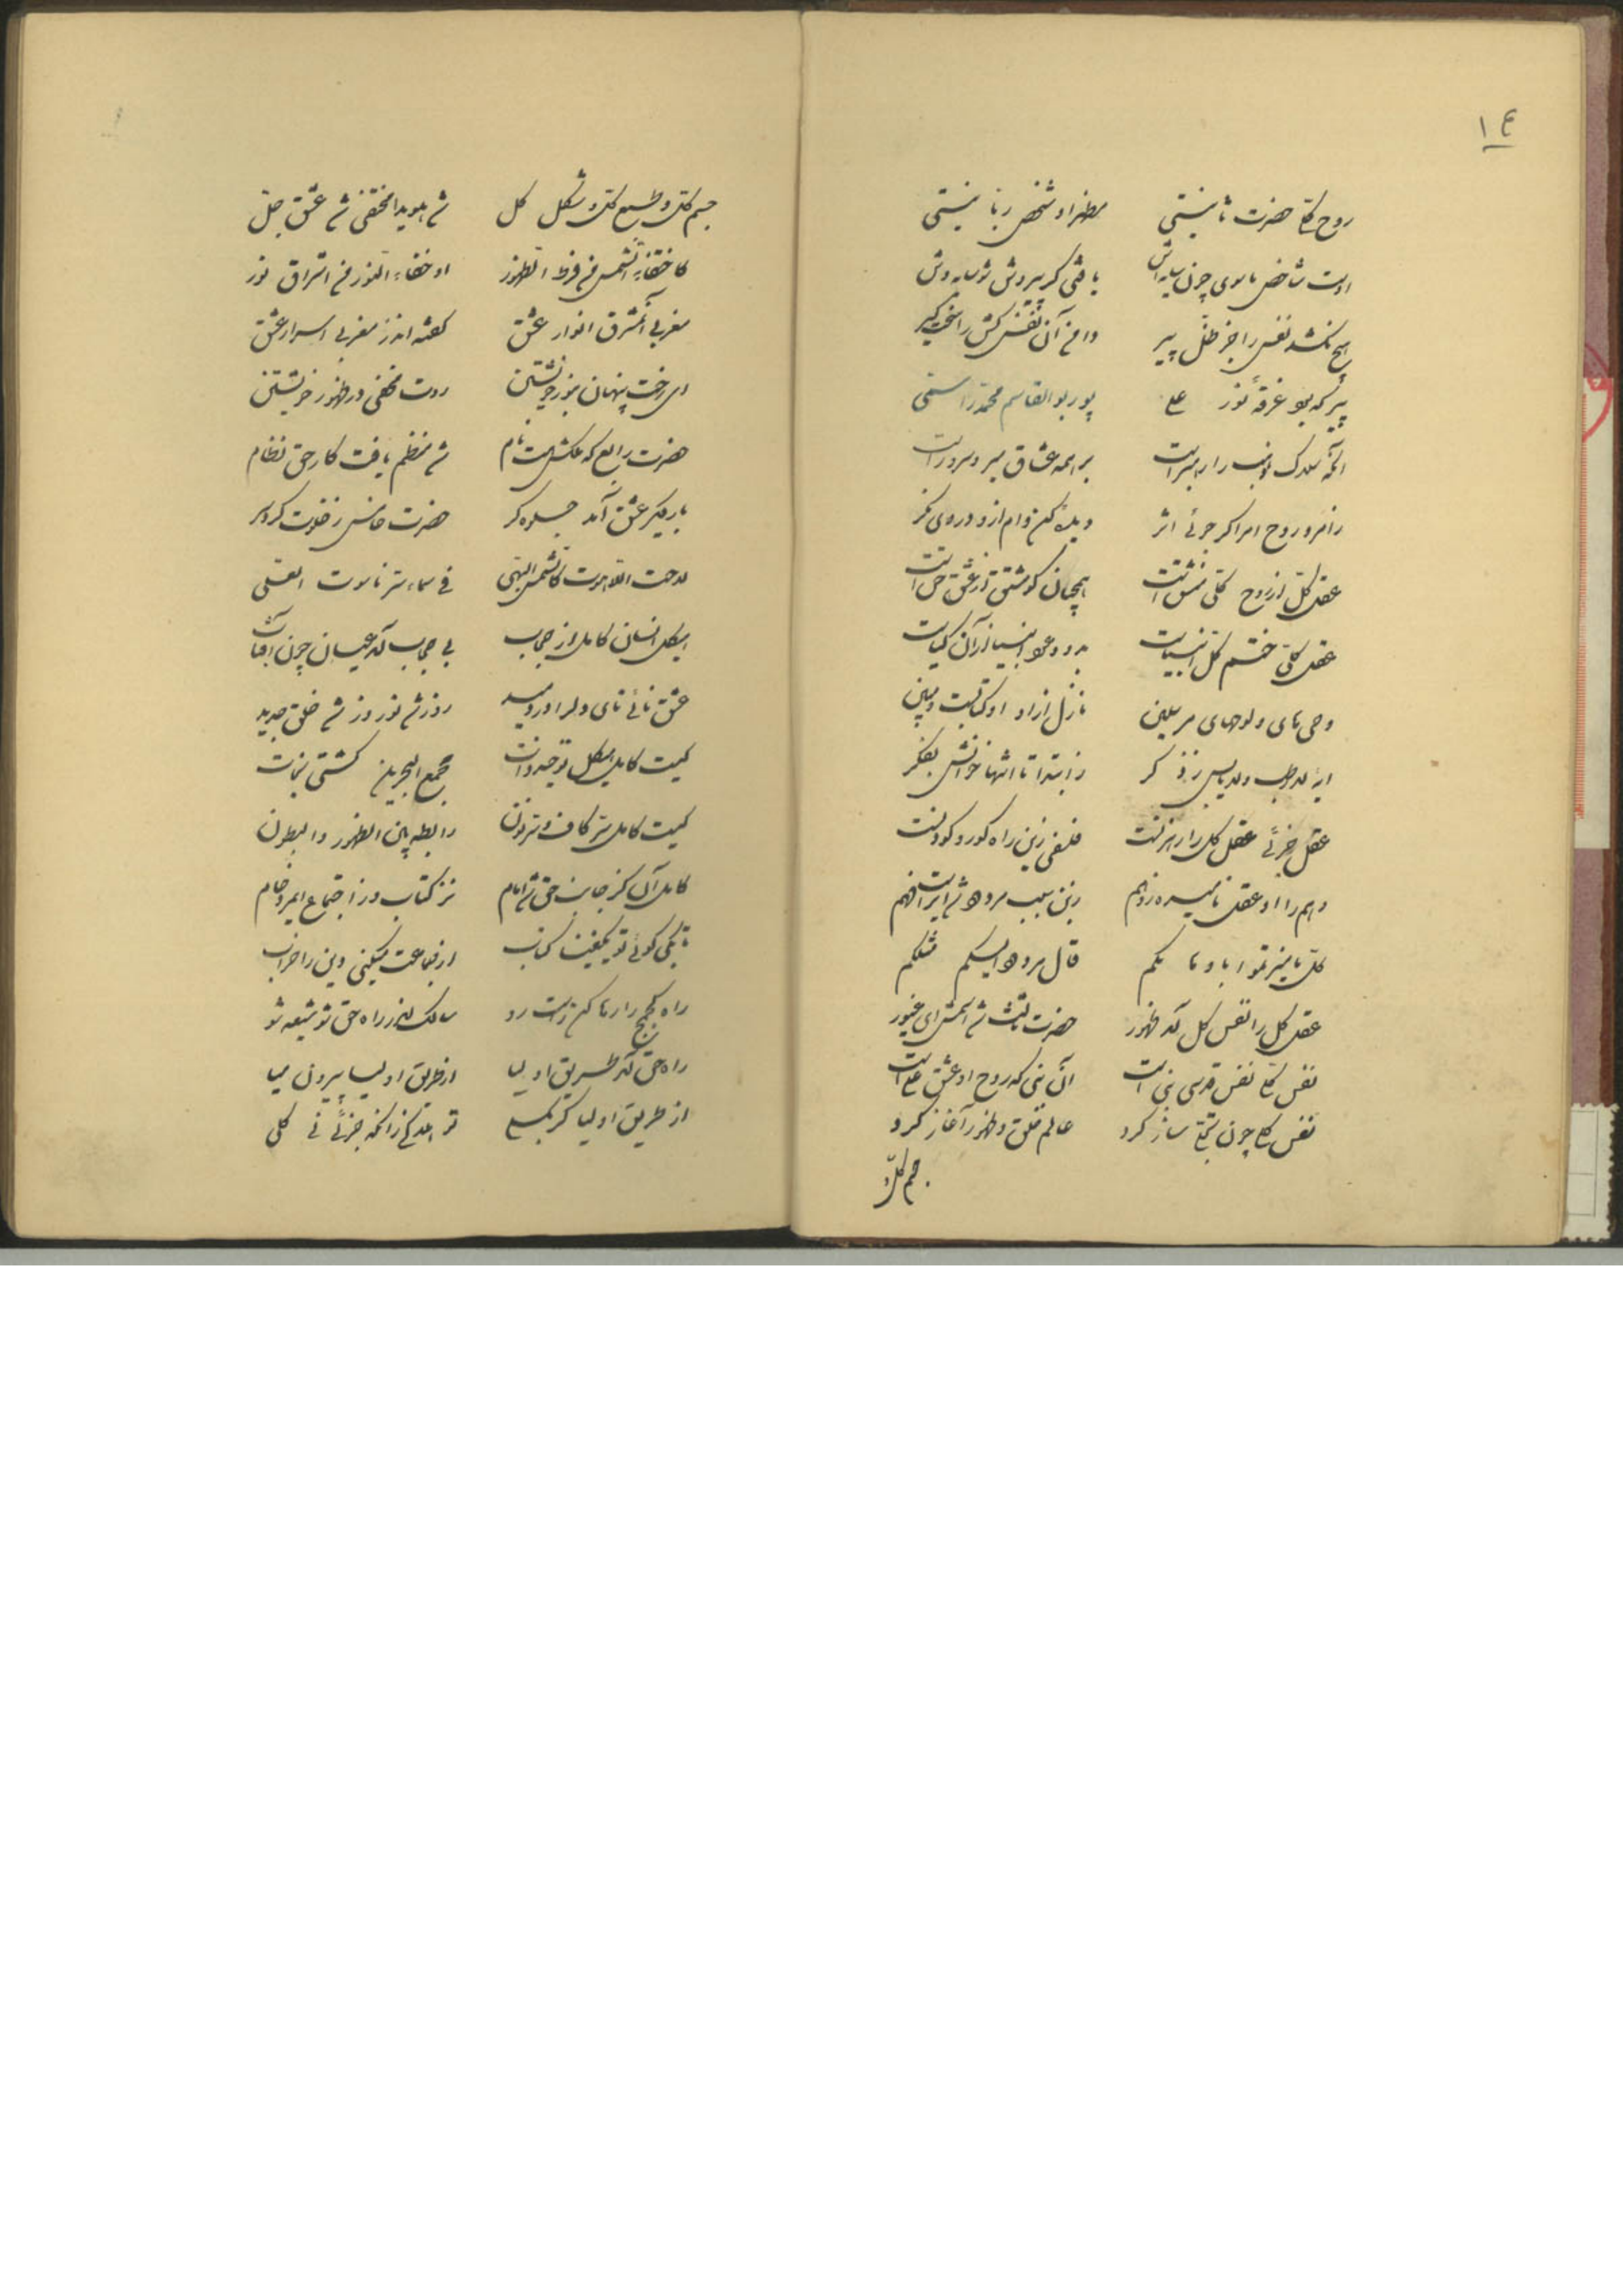 ١٤
روح کلی حضرت ثانیستی مظهر او شخص ربانیستی
اوست شاخص ماسوی چون سایه‌اش یافتی گر پیروش شو سایه‌وش
هیچ نکشد نفس را جز ظل پیر دامن آن نفس کش را سخت گیر
پیر که بود غرقه نور علی پور بوالقاسم محمد راستی
آنکه سلاک را رهبر است بر همه عشاق میر و سرور است
رو امر اگر جوئی اثر دیده کن وام از و در وی نگر
عقل کل از روح کلی منشق است همچنان کو مشتق از عشق حق است
عقل کلی ختم کل انبیاست بدو و عود انبیا زان کیمیاست
وحی‌های و لوح‌های مرسلین نازل از او او کتابست و مبین
آیه لا رطب ولا یابس ز ذکر ز ابتدا تا انتها خوانش بفکر
عقل جزئی عقل کل را رهزنست فلسفی زین راه کور و کودنست
وهم را او عقل نامیده ز وهم زین سبب مردود شد
کل ما میزتموا باوهامکم قال مردود الیکم مثلکم
عقل کل را نفس کل آمد ظهور حضرت ثالث شد اسمش ای غیور
نفس کلی نفس قدسی نبی است آن نبی که روح او عشق علی است
نفس کلی چون تجلی ساز کرد عالم خلق و ظهور آغاز کرد
جسم کل و
جسم کل و طبع کل و شکل کل شد هویدا مختفی شد عشق جل
کاختفاء الشمس من فرط الظهور او خفاء النور من اشراق نور
مغربی آن مشرق انوار عشق گفته اندر مغربی اسرار عشق
ای رخت پنهان بنور خویشتن روت مخفی در ظهور خویشتن
حضرت رابع که ملکش هست نام شد منظم یافت کار حق نظام
بار دیگر عشق آمد جلوه‌گر حضرت خامس ز خلوت کرد سر
لاحت اللاهوت کالشمس البهی فی سماء سر ناسوت العلی
هیکل انسان کامل از حجاب بی حجاب آمد عیان چون آفتاب
عشق نائی نای دل را دردمید روز شد نوروز شد خلق جدید
کیست کامل هیکل توحید ذات مجمع البحرین کشتی نجات
کیست کامل سر کاف و سر نون رابطه بین الظهور والبطون
کامل آن کز جانب حق شد امام نز کتاب و ز اجتماع امر و خام
تا بکی گوئی تو یکفینا کتاب از جماعت میکنی دین را خراب
راه کج را رها کن راست رو سالک اندر راه حق شو شیعه شو
راه حق آمد طریق اولیا از طریق اولیا بیرون میا
از طریق اولیا گر بگسلی تر زانکه جزئی نی کلی